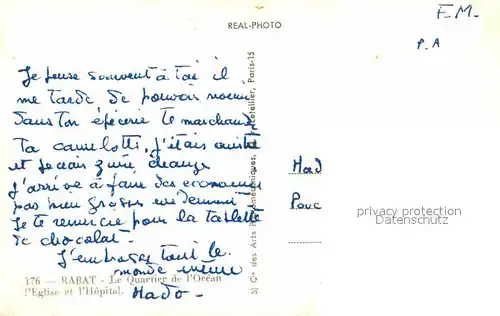 REAL-PHOTO
F.M.
P.A
Je pense souvent à toi il
me tarde de pouvoir venir
dans ton épicerie te marchander
ta camelotti, j'étais
et je
j'arrive à faire des économies
pas bien grosses évidemment
Je te remercie pour la tablette
de chocolat -
J'embrasse tout le
monde même
Mado -
176 — RABAT - Le Quartier de l'Océan
l'Eglise et l'Hôpital.
Cie des Arts Photomécaniques, Paris-15
Mad
Pouc
privacy protection
Datenschutz